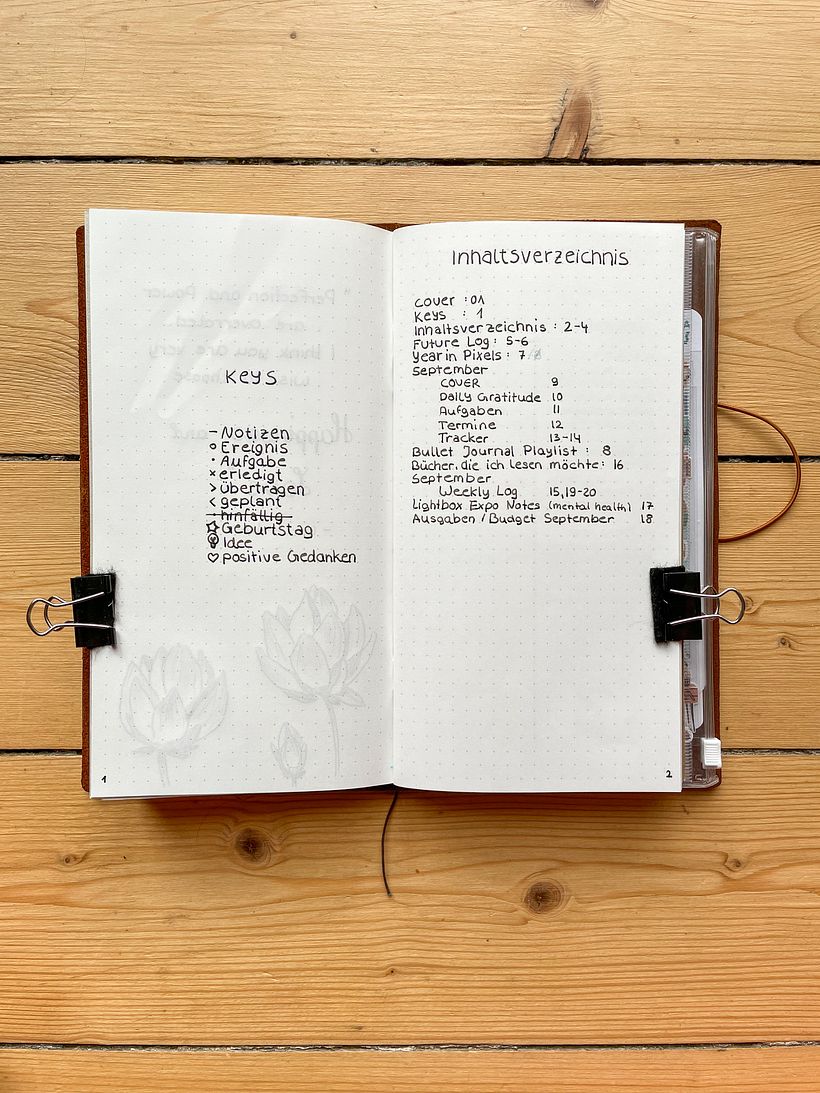 Keys
– Notizen
○ Ereignis
· Aufgabe
× erledigt
> übertragen
< geplant
· hinfällig
☆ Geburtstag
Idee
♡ positive Gedanken
1
Inhaltsverzeichnis
Cover : 01
Keys : 1
Inhaltsverzeichnis : 2-4
Future Log : 5-6
Year in Pixels : 7
September
Cover 9
Daily Gratitude 10
Aufgaben 11
Termine 12
Tracker 13-14
Bullet Journal Playlist : 8
Bücher, die ich lesen möchte : 16
September
Weekly Log 15, 19-20
Lightbox Expo Notes (mental health) 17
Ausgaben / Budget September 18
2